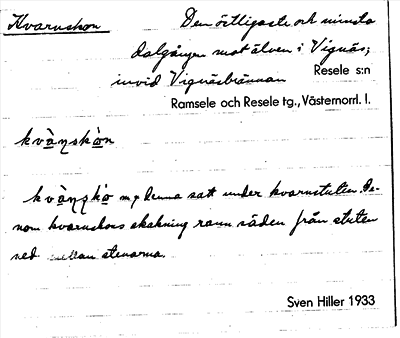 Kvarnskon Den östligaste och minsta
dalgången mot älven i Vignäs;
invid Vignäsbrännan Resele s:n
Ramsele och Resele tg., Västernorrl. l.
kvànskòn
kvànskò m, denna satt under kvarnstuten. Ge-
nom kvarnskons skakning rann säden från stuten
ned mellan stenarna.
Sven Hiller 1933